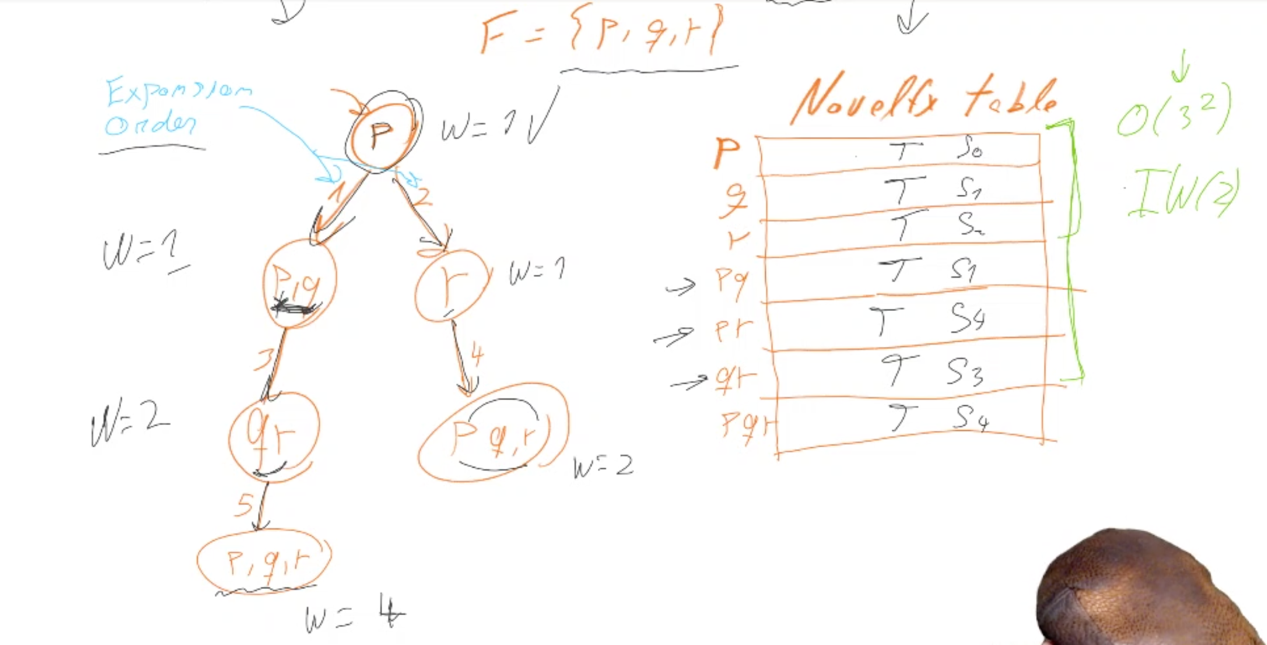 F = {p, q, r}
Expansion
Order
P
W=1 ✓
1
2
W=1
P,q
r
W=1
3
4
W=2
qr
P q,r
W=2
5
P,q,r
W= 4
Novelty table
P T S0
q T S1
r T S2
→ Pq T S1
→ Pr T S4
→ qr T S3
Pqr T S4
O(3²)
IW(2)